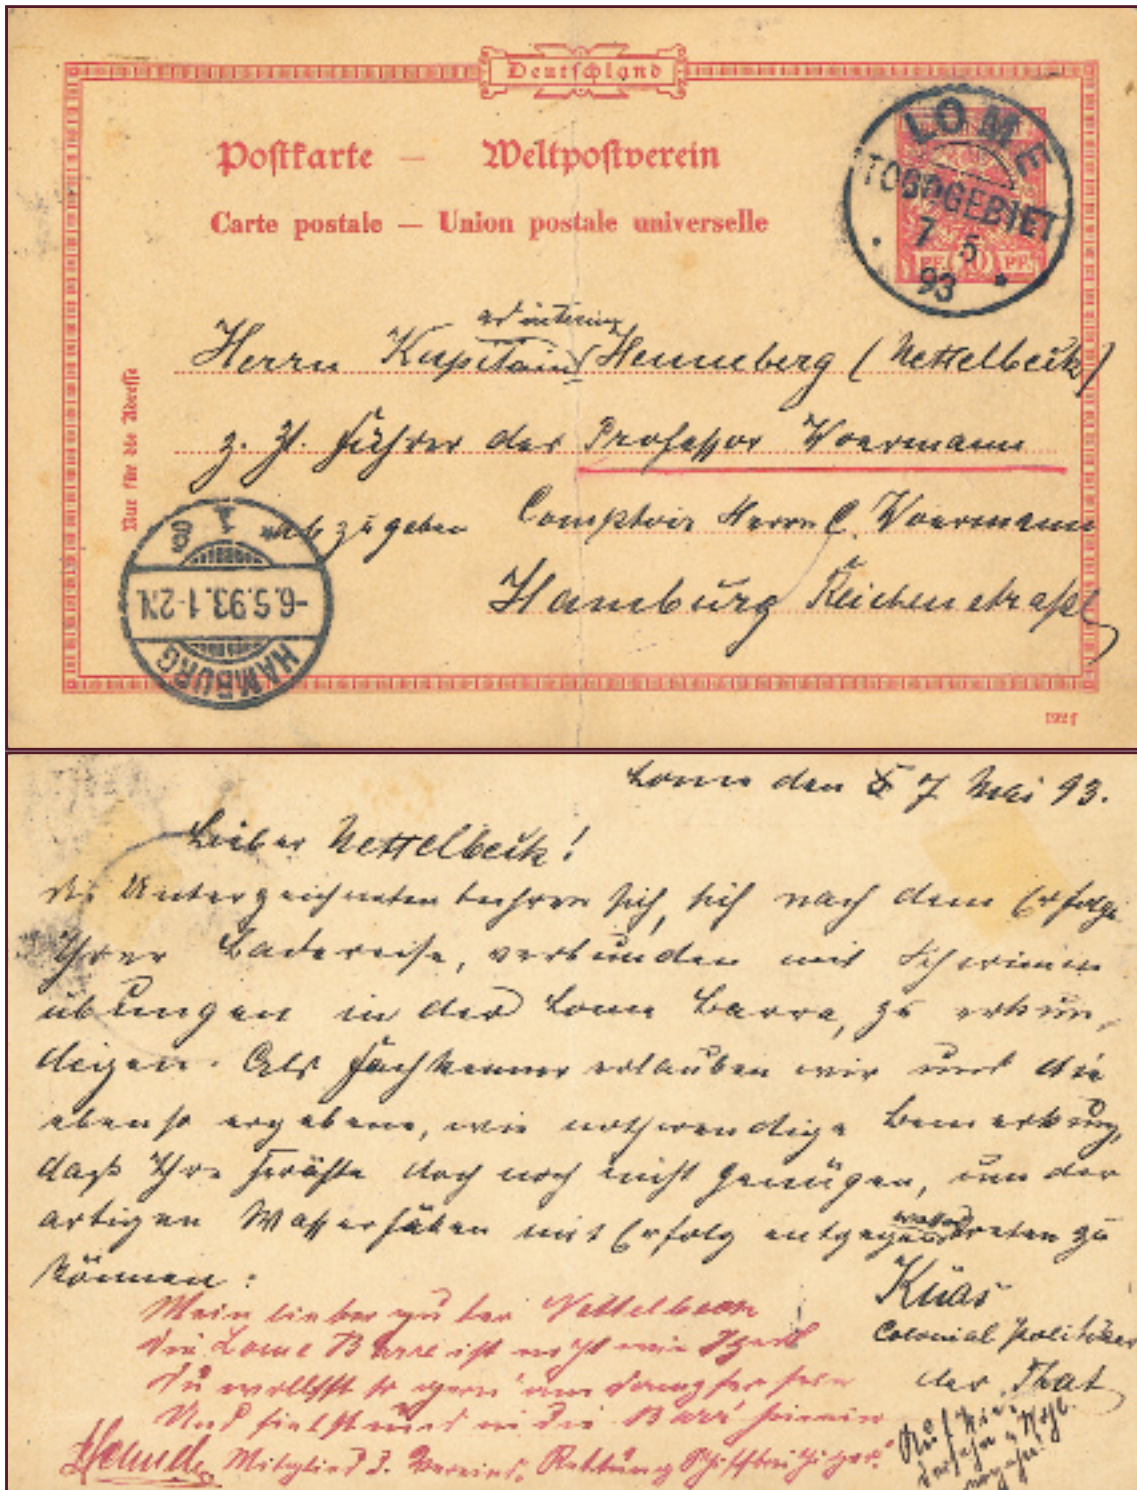 Deutschland
Postkarte — Weltpostverein
Carte postale — Union postale universelle
LOME
TOGOGEBIET
7 5
93
PF. 10 PF.
Nur für die Adresse
ad interim
Herrn Kapitain Henneberg (Nettelbeck)
z. Zt. Führer der Professor Woermann
abzugeben Comptoir Herrn C. Woermann
Hamburg Reichenstraße
HAMBURG
-6.5.93.1-2N.
1
Lome den 7 Mai 93.
Lieber Nettelbeck!
Die Unterzeichneten beehren sich, sich nach dem Erfolge
Ihrer Badereise, verbunden mit Schwimm
übungen in der Lome Barre, zu erkun-
digen. Als Fachkenner erlauben wir uns die
ebenso ergebene, wie nothwendige Bemerkung,
daß Ihre Kräfte doch noch nicht genügen, um der
artigen Wasserfällen mit Erfolg entgegentreten zu
können:
Küas
Colonial Politiker
der That
Mein lieber guter Nettelbeck
Die Lome Barre ist nicht wie
Du wolltest so gern am Dampfer sein
Und fielst in die Barr' hinein
Mitglied d. Vereins. Rettung Schiffbrüchiger.